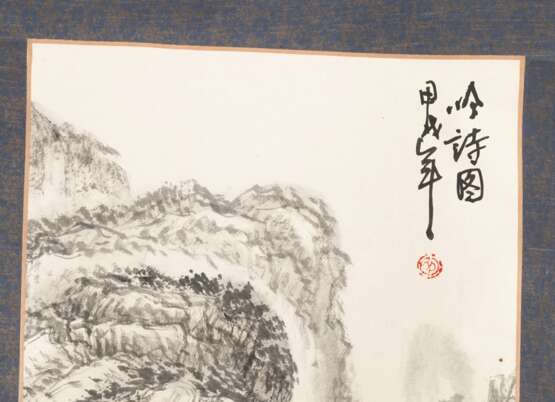 吟詩图
甲戌年